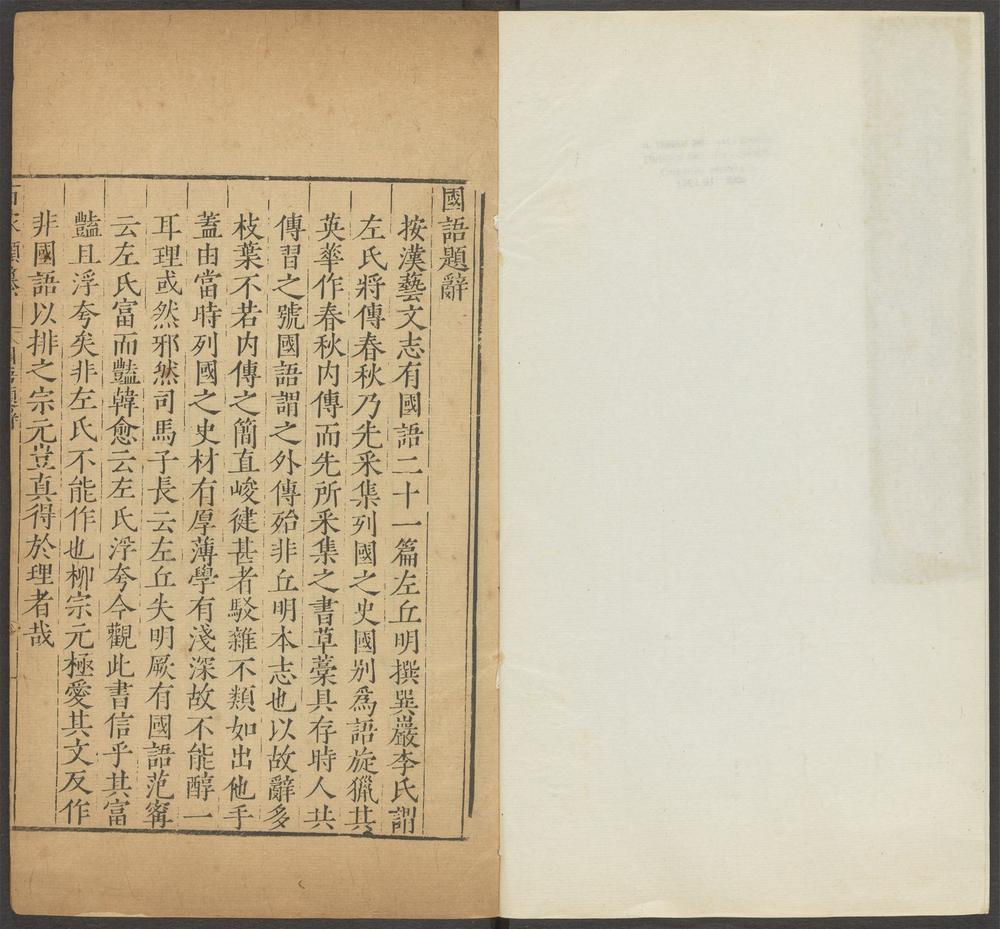 國語題辭
按漢藝文志有國語二十一篇左丘明撰巽巖李氏謂
左氏將傳春秋乃先釆集列國之史國別爲語旋獵其
英華作春秋内傳而先所釆集之書草藁具存時人共
傳習之號國語謂之外傳殆非丘明本志也以故辭多
枝葉不若内傳之簡直峻徤甚者駁雜不類如出他手
蓋由當時列國之史材有厚薄學有淺深故不能醇一
耳理或然邪然司馬子長云左丘失明厥有國語范甯
云左氏富而豔韓愈云左氏浮夸今觀此書信乎其富
豔且浮夸矣非左氏不能作也柳宗元極愛其文反作
非國語以排之宗元豈真得於理者哉